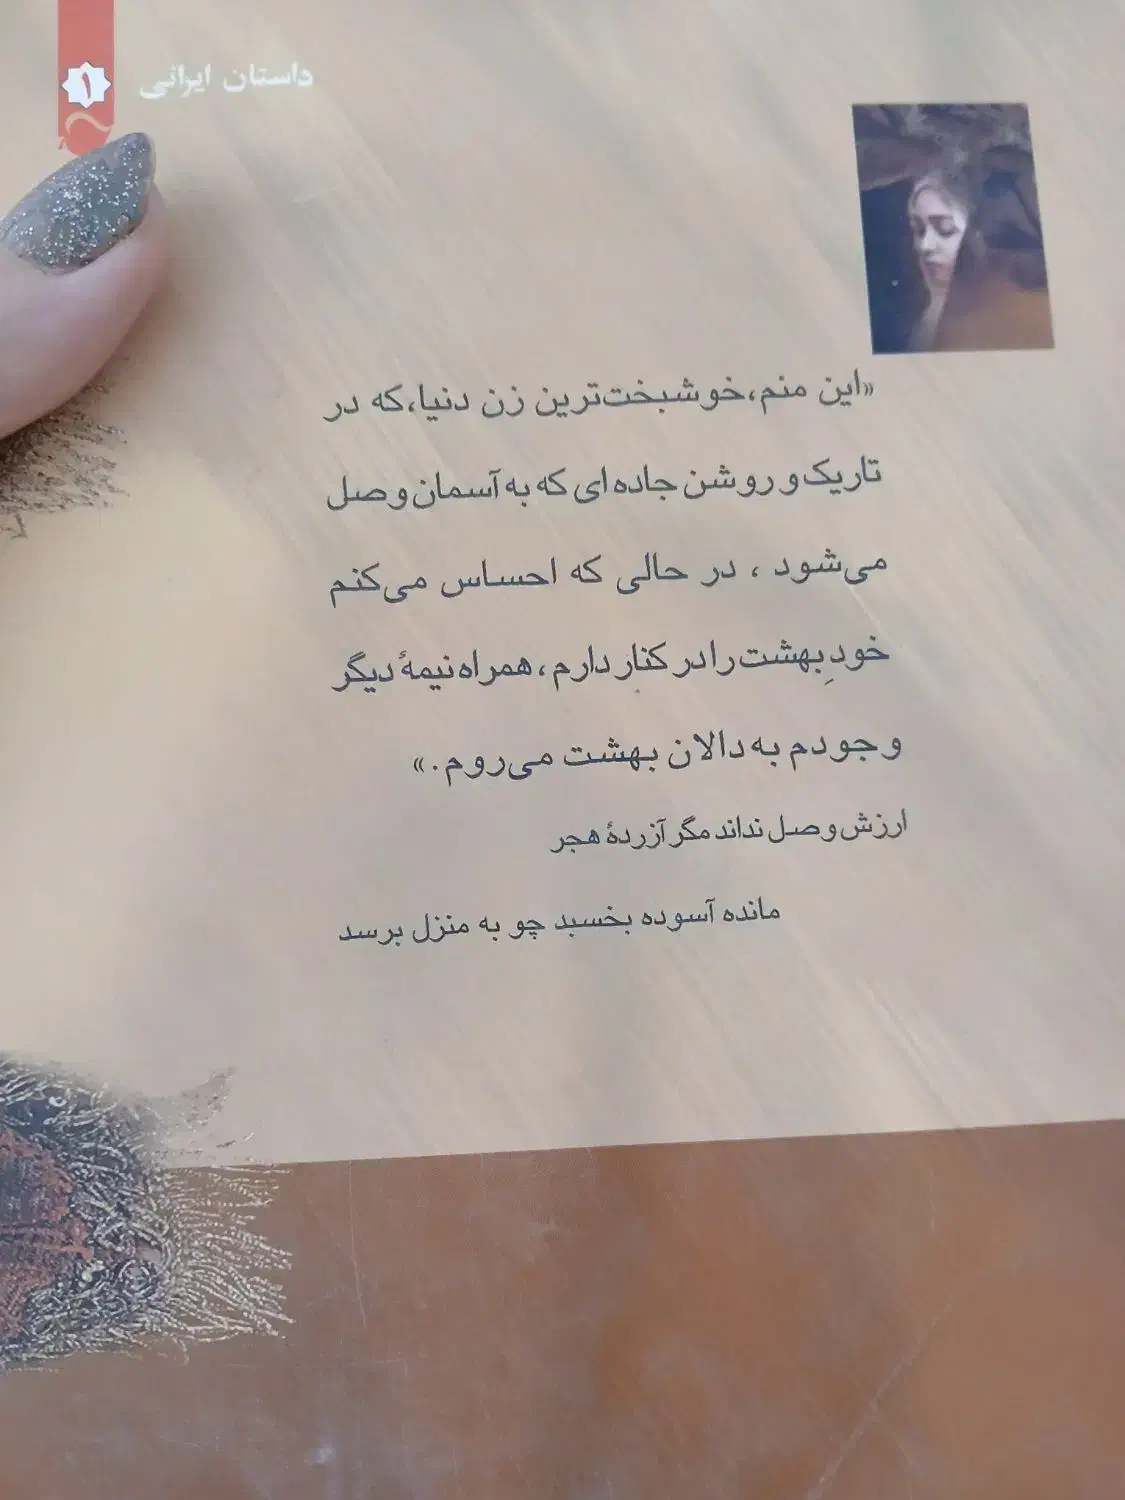 داستان ایرانی
۱
«این منم،خوشبخت‌ترین زن دنیا،که در
تاریک و روشن جاده‌ای که به آسمان وصل
می‌شود ، در حالی که احساس می‌کنم
خودِ بهشت را در کنار دارم ، همراه نیمهٔ دیگر
وجودم به دالان بهشت می‌روم.»
ارزش وصل نداند مگر آزردهٔ هجر
مانده آسوده بخسبد چو به منزل برسد